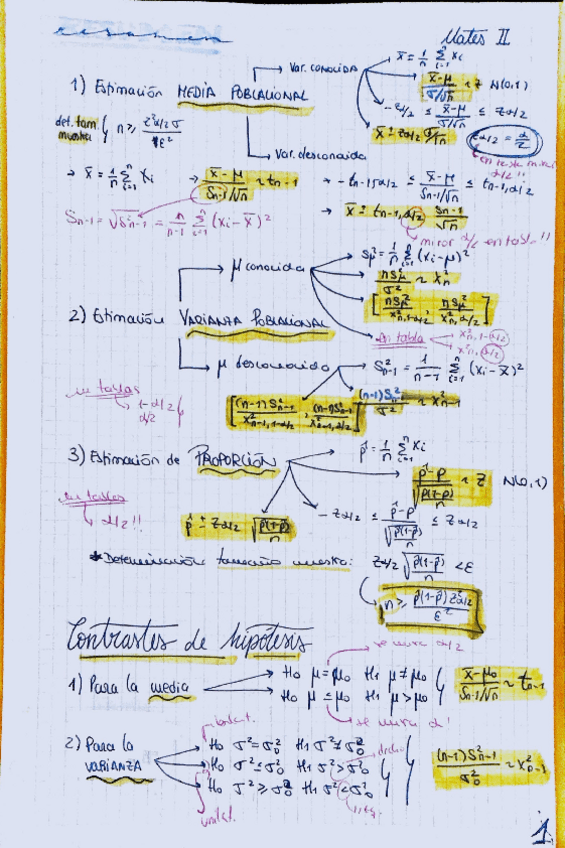 resumen
Mates II
1) Estimación MEDIA POBLACIONAL
Var. conocida
x̄ = 1/n Σ xi
(x̄-μ)/(σ/√n) ~ Z N(0,1)
-Zα/2 ≤ (x̄-μ)/(σ/√n) ≤ Zα/2
x̄ ± Zα/2 σ/√n
det. tam muestra
Var. desconocida
→ x̄ = 1/n Σ xi → (x̄-μ)/(Sn-1/√n) ~ tn-1
→ x̄ ± tn-1,α/2 Sn-1/√n
mirar α/2 en tabla!!
2) Estimación VARIANZA POBLACIONAL
μ conocida
Sμ² = 1/n Σ (xi-μ)²
nSμ²/σ² ~ χ²n
[nSμ²/χ²n,1-α/2 , nSμ²/χ²n,α/2]
En tabla
χ²n,1-α/2
χ²n,α/2
μ desconocida
S²n-1 = 1/(n-1) Σ (xi-x̄)²
(n-1)S²n-1/σ² ~ χ²n-1
[(n-1)S²n-1/χ²n-1,1-α/2 , (n-1)S²n-1/χ²n-1,α/2]
en tablas
1-α/2
α/2
3) Estimación de PROPORCIÓN
p̂ = 1/n Σ xi
~ Z N(0,1)
en tablas
α/2!!
p̂ ± Zα/2 √(p̂(1-p̂)/n)
* Determinación tamaño muestra: Zα/2 √(p̂(1-p̂)/n) < ε
n ≥ p̂(1-p̂) Z²α/2 / ε²
Contrastes de hipótesis
se mira α/2
1) Para la media
H0 μ = μ0 H1 μ ≠ μ0
H0 μ ≤ μ0 H1 μ > μ0
(x̄-μ0)/(Sn-1/√n) ~ tn-1
se mira α!
2) Para la VARIANZA
H0 σ² = σ0² H1 σ² ≠ σ0²
H0 σ² ≤ σ0² H1 σ² > σ0²
H0 σ² ≥ σ0² H1 σ² < σ0²
unilat.
(n-1)S²n-1/σ0² ~ χ²n-1
1